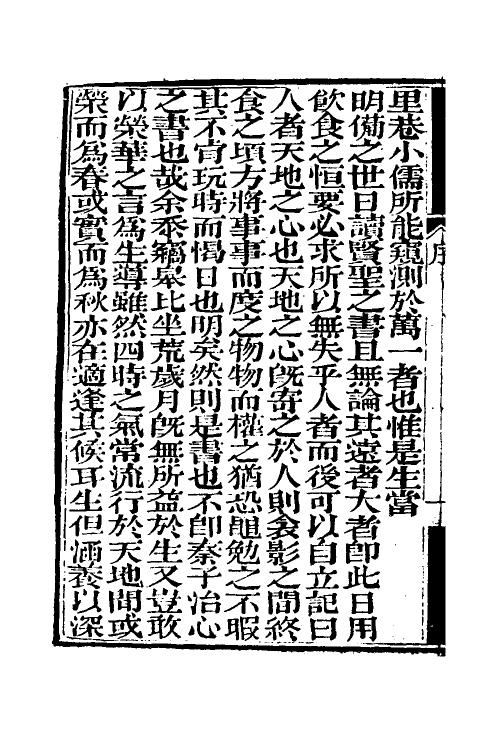 序
里巷小儒所能窺測於萬一者也惟是生當
明備之世日讀賢聖之書且無論其遠者大者卽此日用
飮食之恒要必求所以無失乎人者而後可以自立記曰
人者天地之心也天地之心旣寄之於人則衾影之間終
食之頃方將事事而度之物物而權之猶恐黽勉之不暇
其不肯玩時而愒日也明矣然則是書也不卽秦子治心
之書也哉余忝竊皋比坐荒歲月旣無所益於生又豈敢
以榮華之言爲生導雖然四時之氣常流行於天地間或
榮而爲春或實而爲秋亦在適逢其候耳生但涵養以深